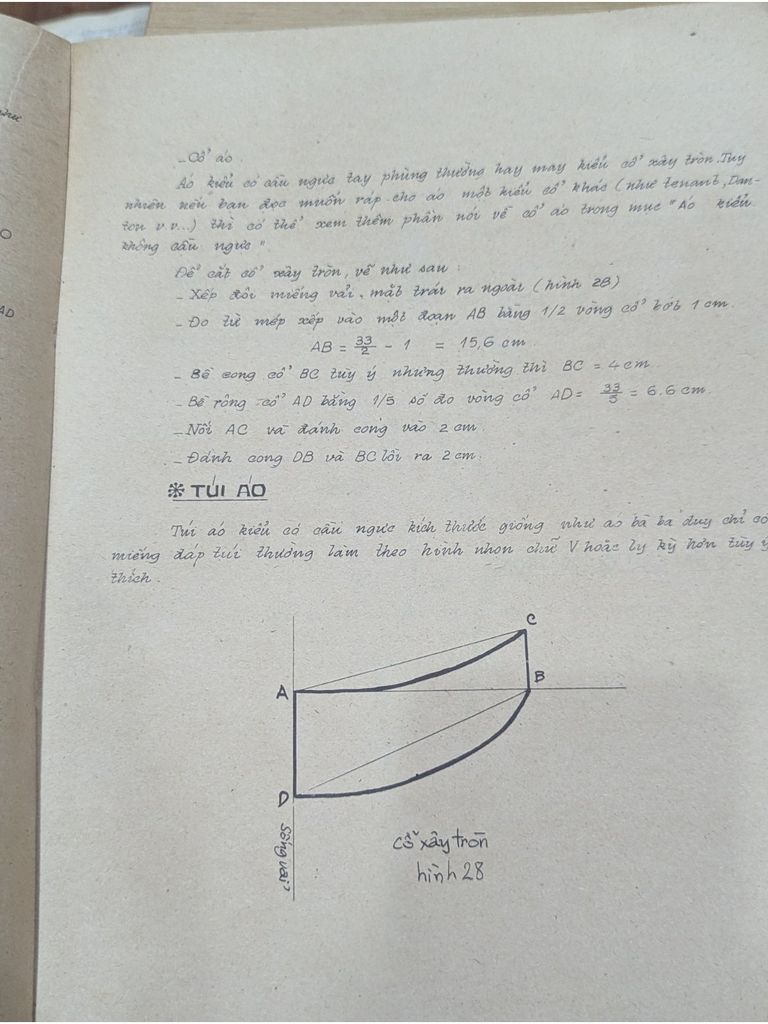 O
AD
- Cổ áo.
Áo kiểu có cầu ngực tay phùng thường hay may kiểu cổ xây tròn. Tuy
nhiên nếu bạn đọc muốn ráp cho áo một kiểu cổ khác (như tenant, Dan-
ton v.v...) thì có thể xem thêm phần nói về cổ áo trong mục "Áo kiểu
không cầu ngực"
Để cắt cổ xây tròn, vẽ như sau:
- Xếp đôi miếng vải, mặt trái ra ngoài (hình 28)
- Đo từ mép xếp vào một đoạn AB bằng 1/2 vòng cổ bớt 1 cm.
AB = 33/2 - 1 = 15,6 cm.
- Bề cong cổ BC tùy ý nhưng thường thì BC = 4 cm
- Bề rộng cổ AD bằng 1/5 số đo vòng cổ AD = 33/5 = 6.6 cm.
- Nối AC và đánh cong vào 2 cm.
- Đánh cong DB và BC lồi ra 2 cm.
❊ TÚI ÁO
Túi áo kiểu có cầu ngực kích thước giống như áo bà ba duy chỉ có
miếng đáp túi thường làm theo hình nhọn chữ V hoặc ly kỳ hơn tùy ý
thích.
C
A
B
D
Sống vải
cổ xây tròn
hình 28